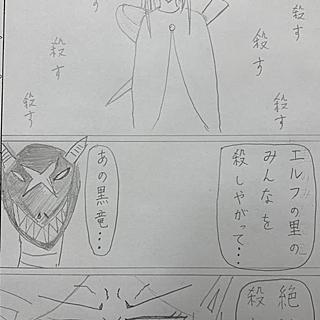 殺す
殺す
殺す
殺す
殺す
エルフの里の
みんなを
殺しやがって…
あの黒竜…
絶
殺